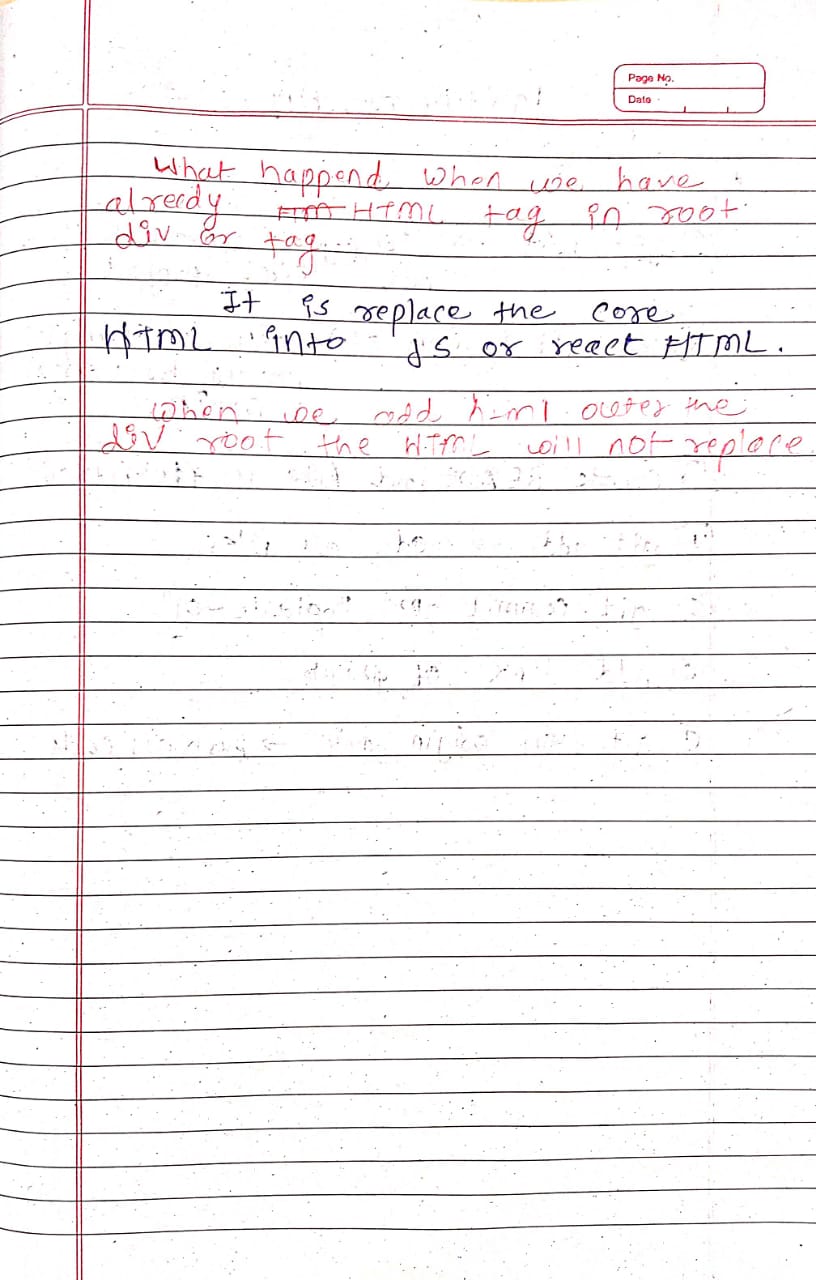 Page No.
Date
What happend when we have
already HTML tag in root
div or tag
It is replace the core
HTML into JS or react HTML.
When we add html outer the
div root the HTML will not replace